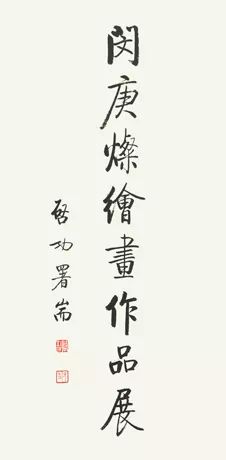 閔庚燦繪畫作品展
啓功署耑